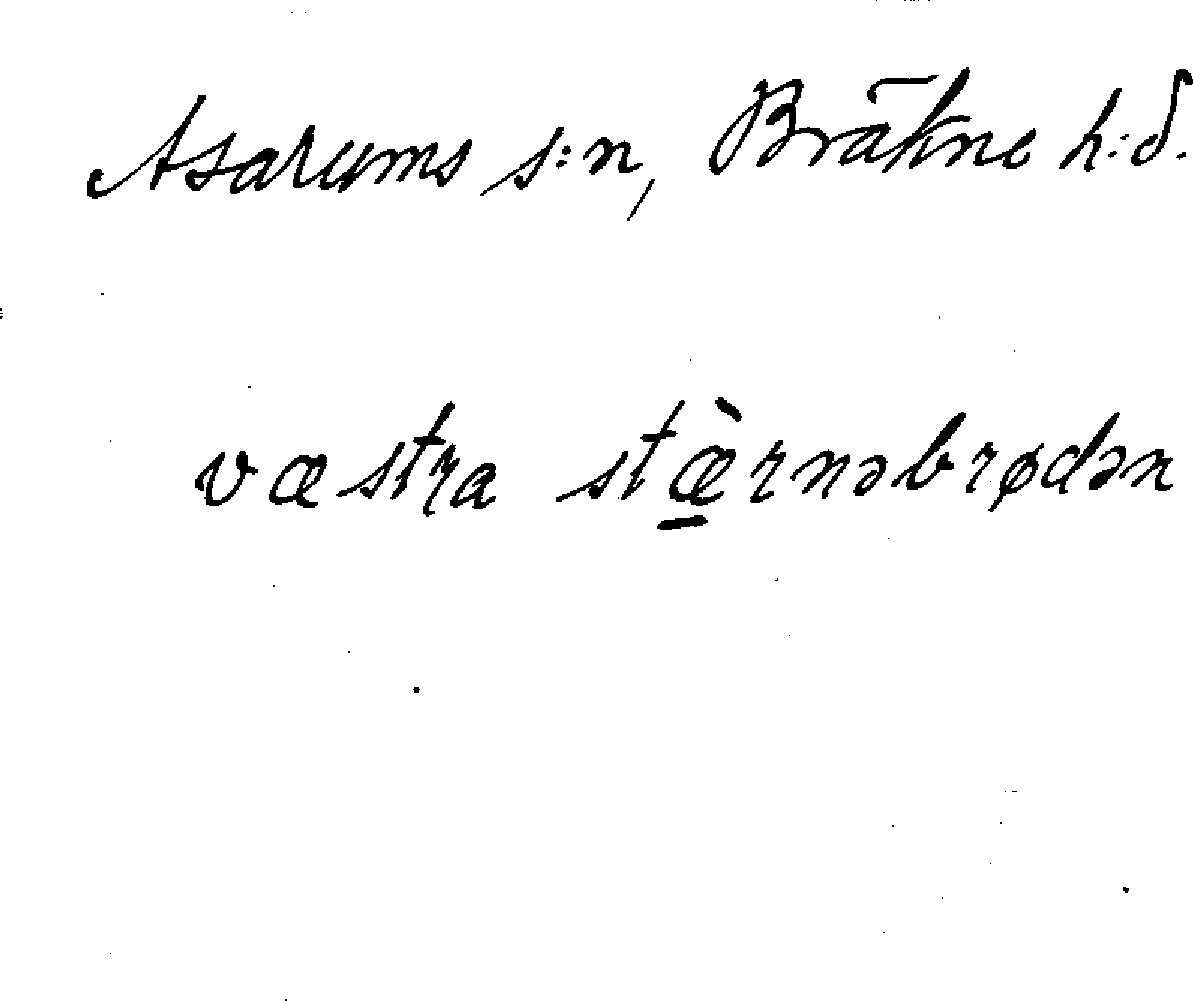 Asarums s:n, Bräkne h:d.
væstra stæ̱̀rnəbrødən